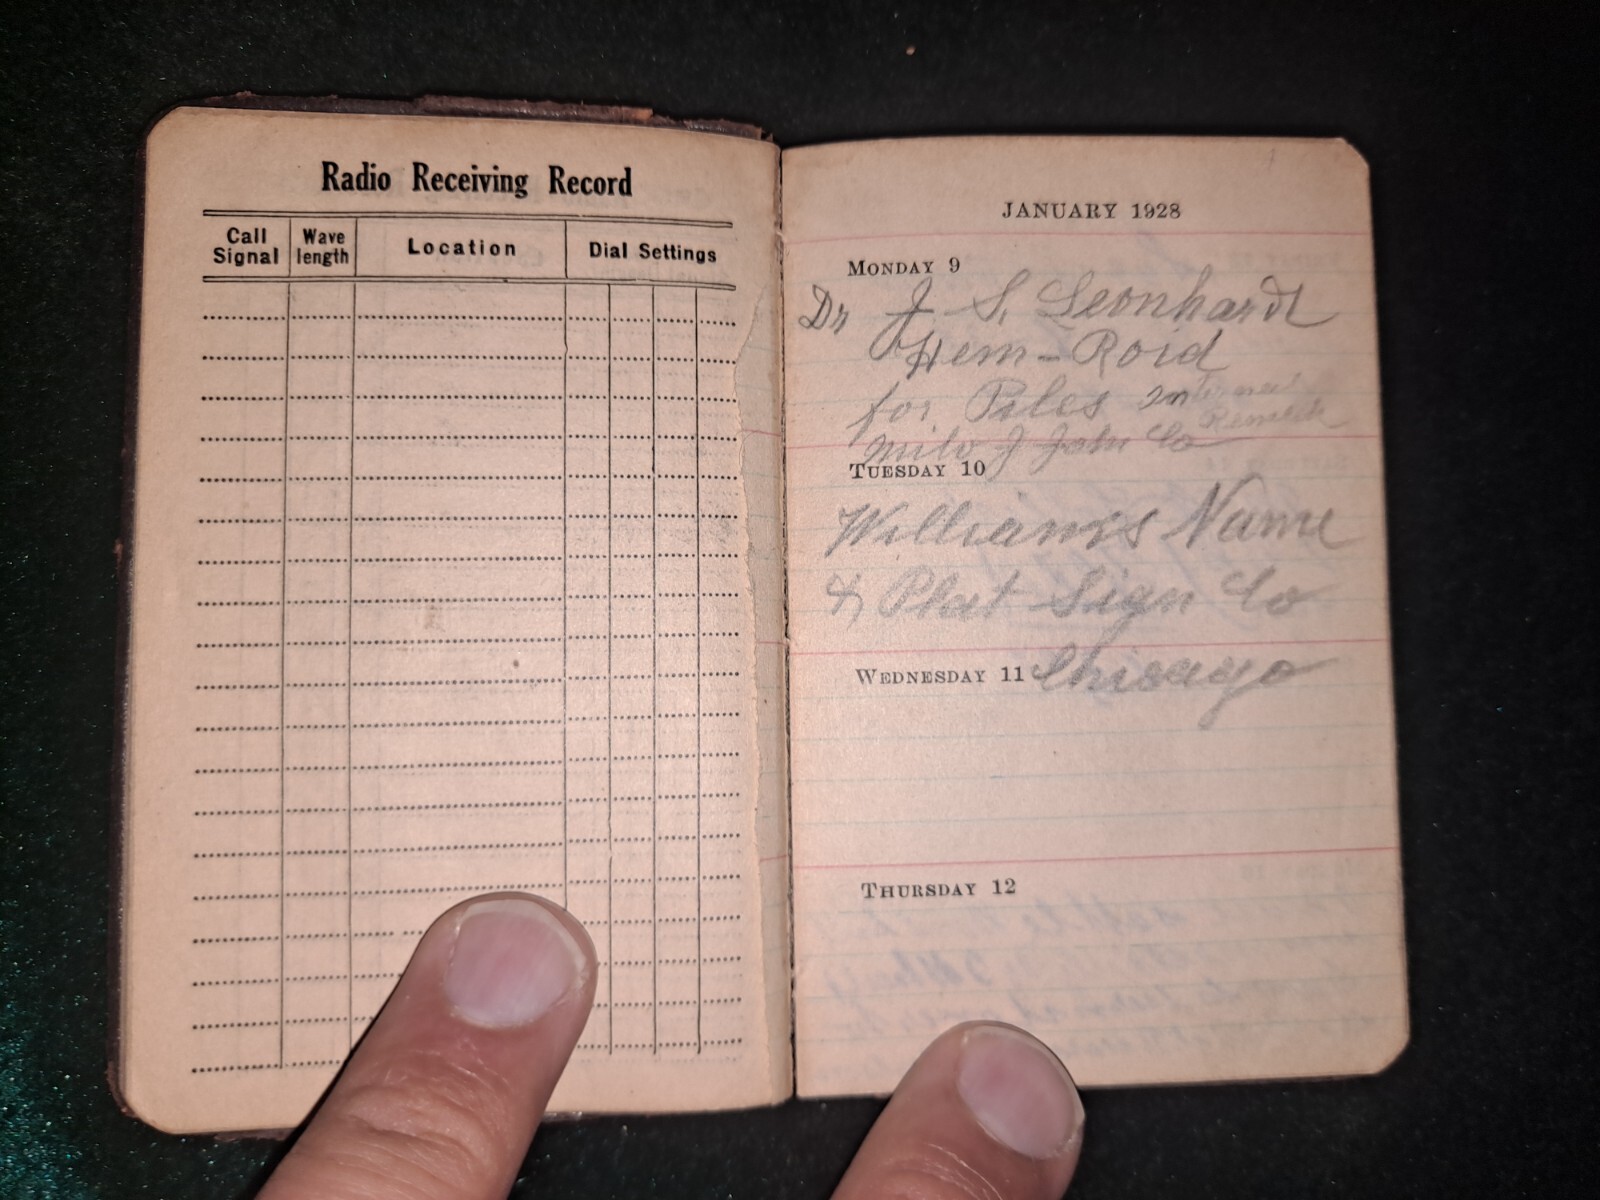 Radio Receiving Record
Call Signal
Wave length
Location
Dial Settings
JANUARY 1928
MONDAY 9
Dr J. S. Leonhardt
Hem-Roid
for Piles Internal
Milo J John Co
TUESDAY 10
Williams Name
& Plat Sign Co
WEDNESDAY 11 Chicago
THURSDAY 12